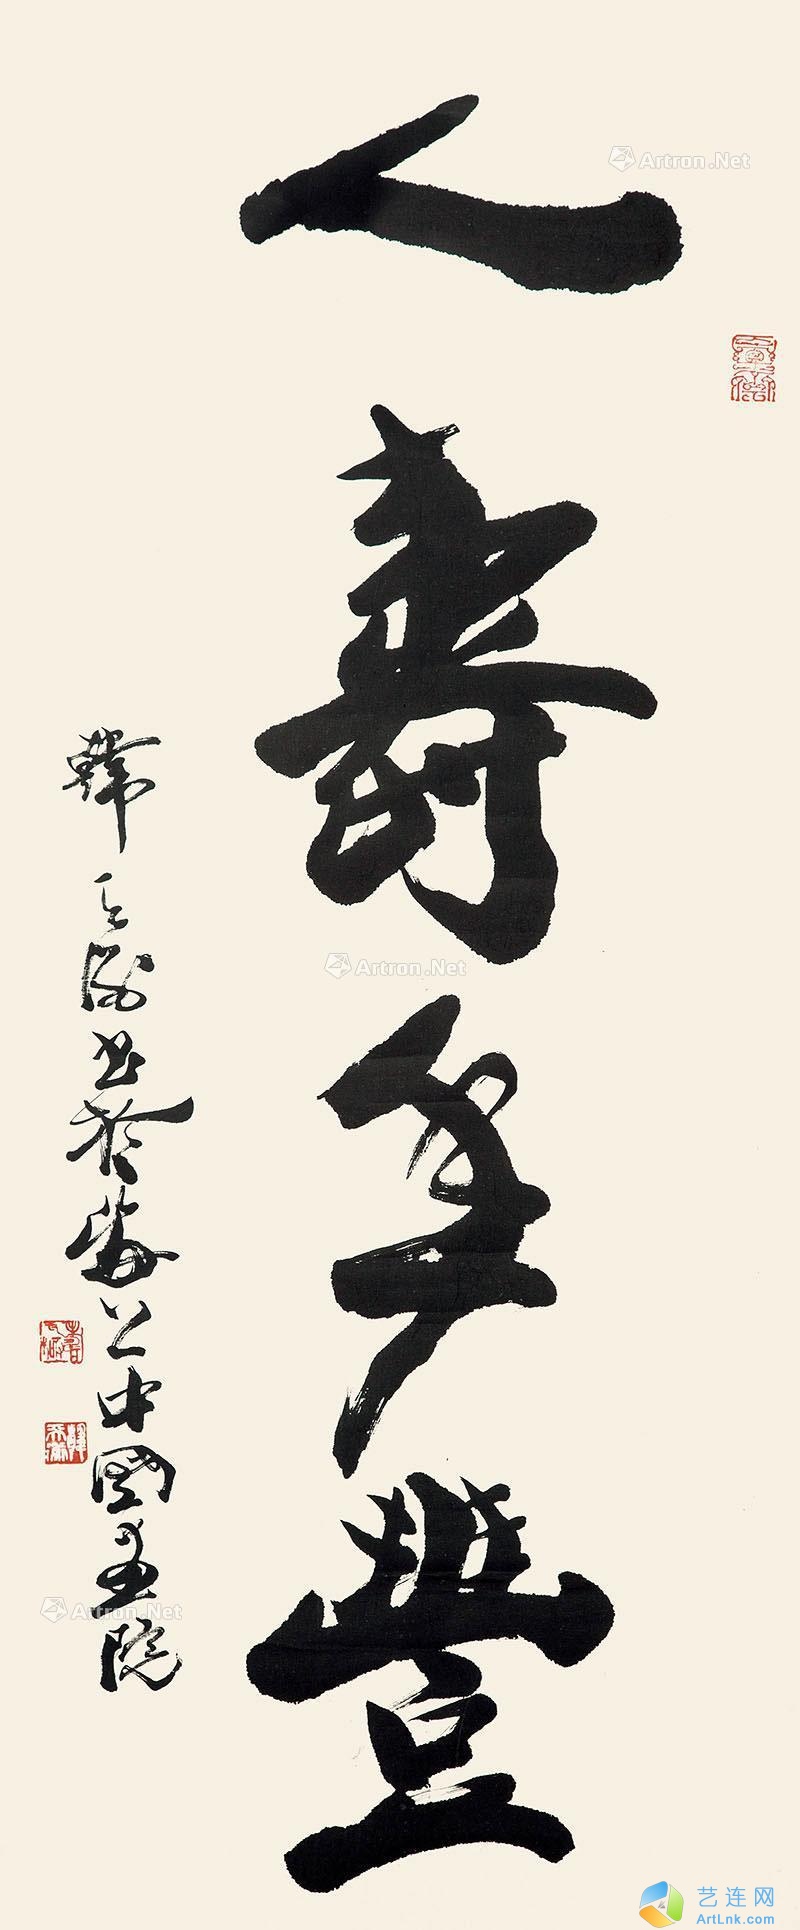 人壽年豐
韓天衡書於梅公中國畫院
Artron.Net
Artron.Net
Artron.Net
艺连网
ArtLnk.com